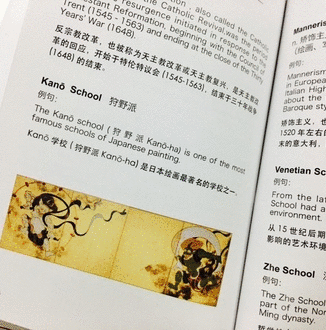 , also called the Catholic
the Catholic Revival, was the period
Resurgence initiated in response to the
Reformation, beginning with the Council of
Trent (1545 - 1563) and ending at the close of the Thirty
Years' War (1648).
反宗教改革，也被称为天主教改革或天主教复兴，是天主教对宗教
改革的回应，开始于特伦特议会（1545-1563），结束于三十年战争
（1648）的结束。
Kanō School 狩野派
例句：
The Kanō school (狩野派 Kanō-ha) is one of the most
famous schools of Japanese painting.
Kanō 学校（狩野派 Kanō-ha）是日本绘画最著名的学校之一.
Mannerism
Mannerism
in European
Italian High
about the
Baroque
style
矫饰主义，也
1520 年在
末的意大利，
Venetian
例句：
From the late
School had a
environment.
从 15 世纪后期
影响的艺术环境
Zhe School
例句：
The Zhe School
part of the Nor
Ming dynasty.